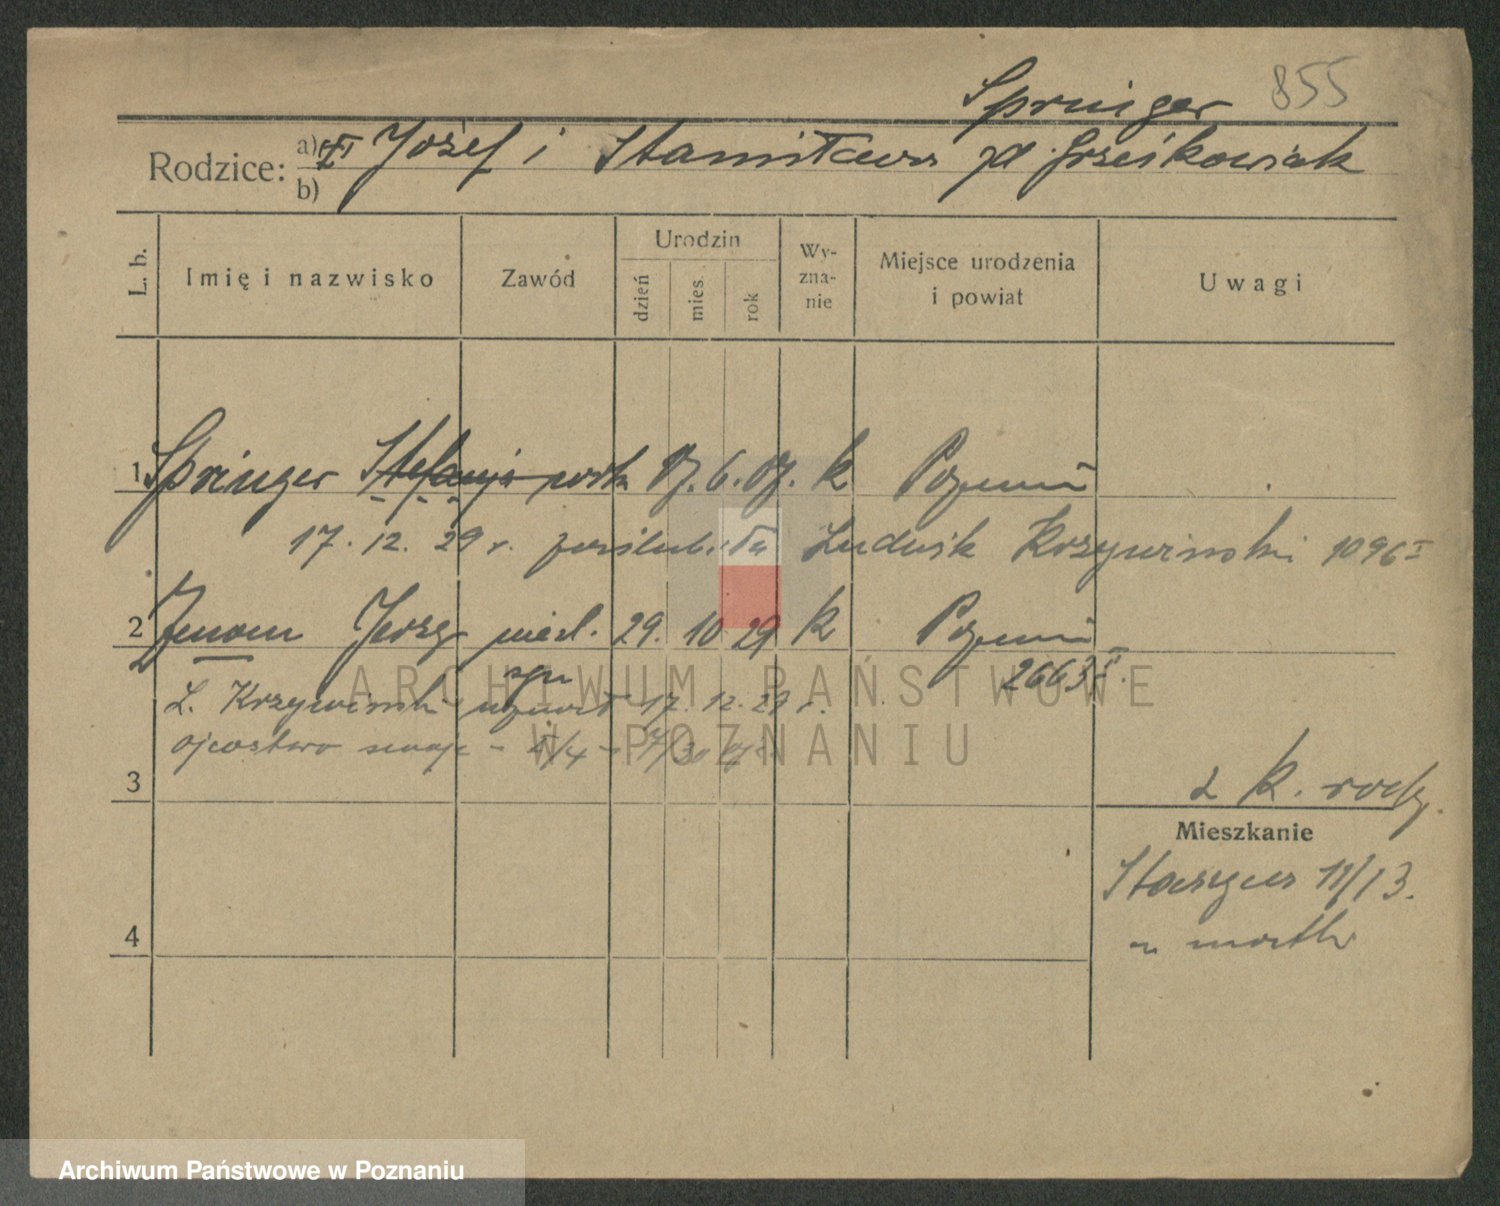 Springer 855
Rodzice: a) Józef i Stanisława zd. Grześkowiak
b)
L. b. Imię i nazwisko Zawód Urodzin dzień mies. rok Wy-zna-nie Miejsce urodzenia i powiat Uwagi
1 Springer Stefanja 07. 6. 07. k Poznań
17. 12. 29 r. poślubiła Ludwik Krzywiński 1096 I
2 Zenon Jerzy 29. 10 29 k Poznań
syn 2663 I.
L. Krzywiński uznał 17. 12. 29 r.
ojcostwo swoje -
3 k.
Mieszkanie
11/13.
u matki
4
ARCHIWUM PAŃSTWOWE
W POZNANIU
Archiwum Państwowe w Poznaniu